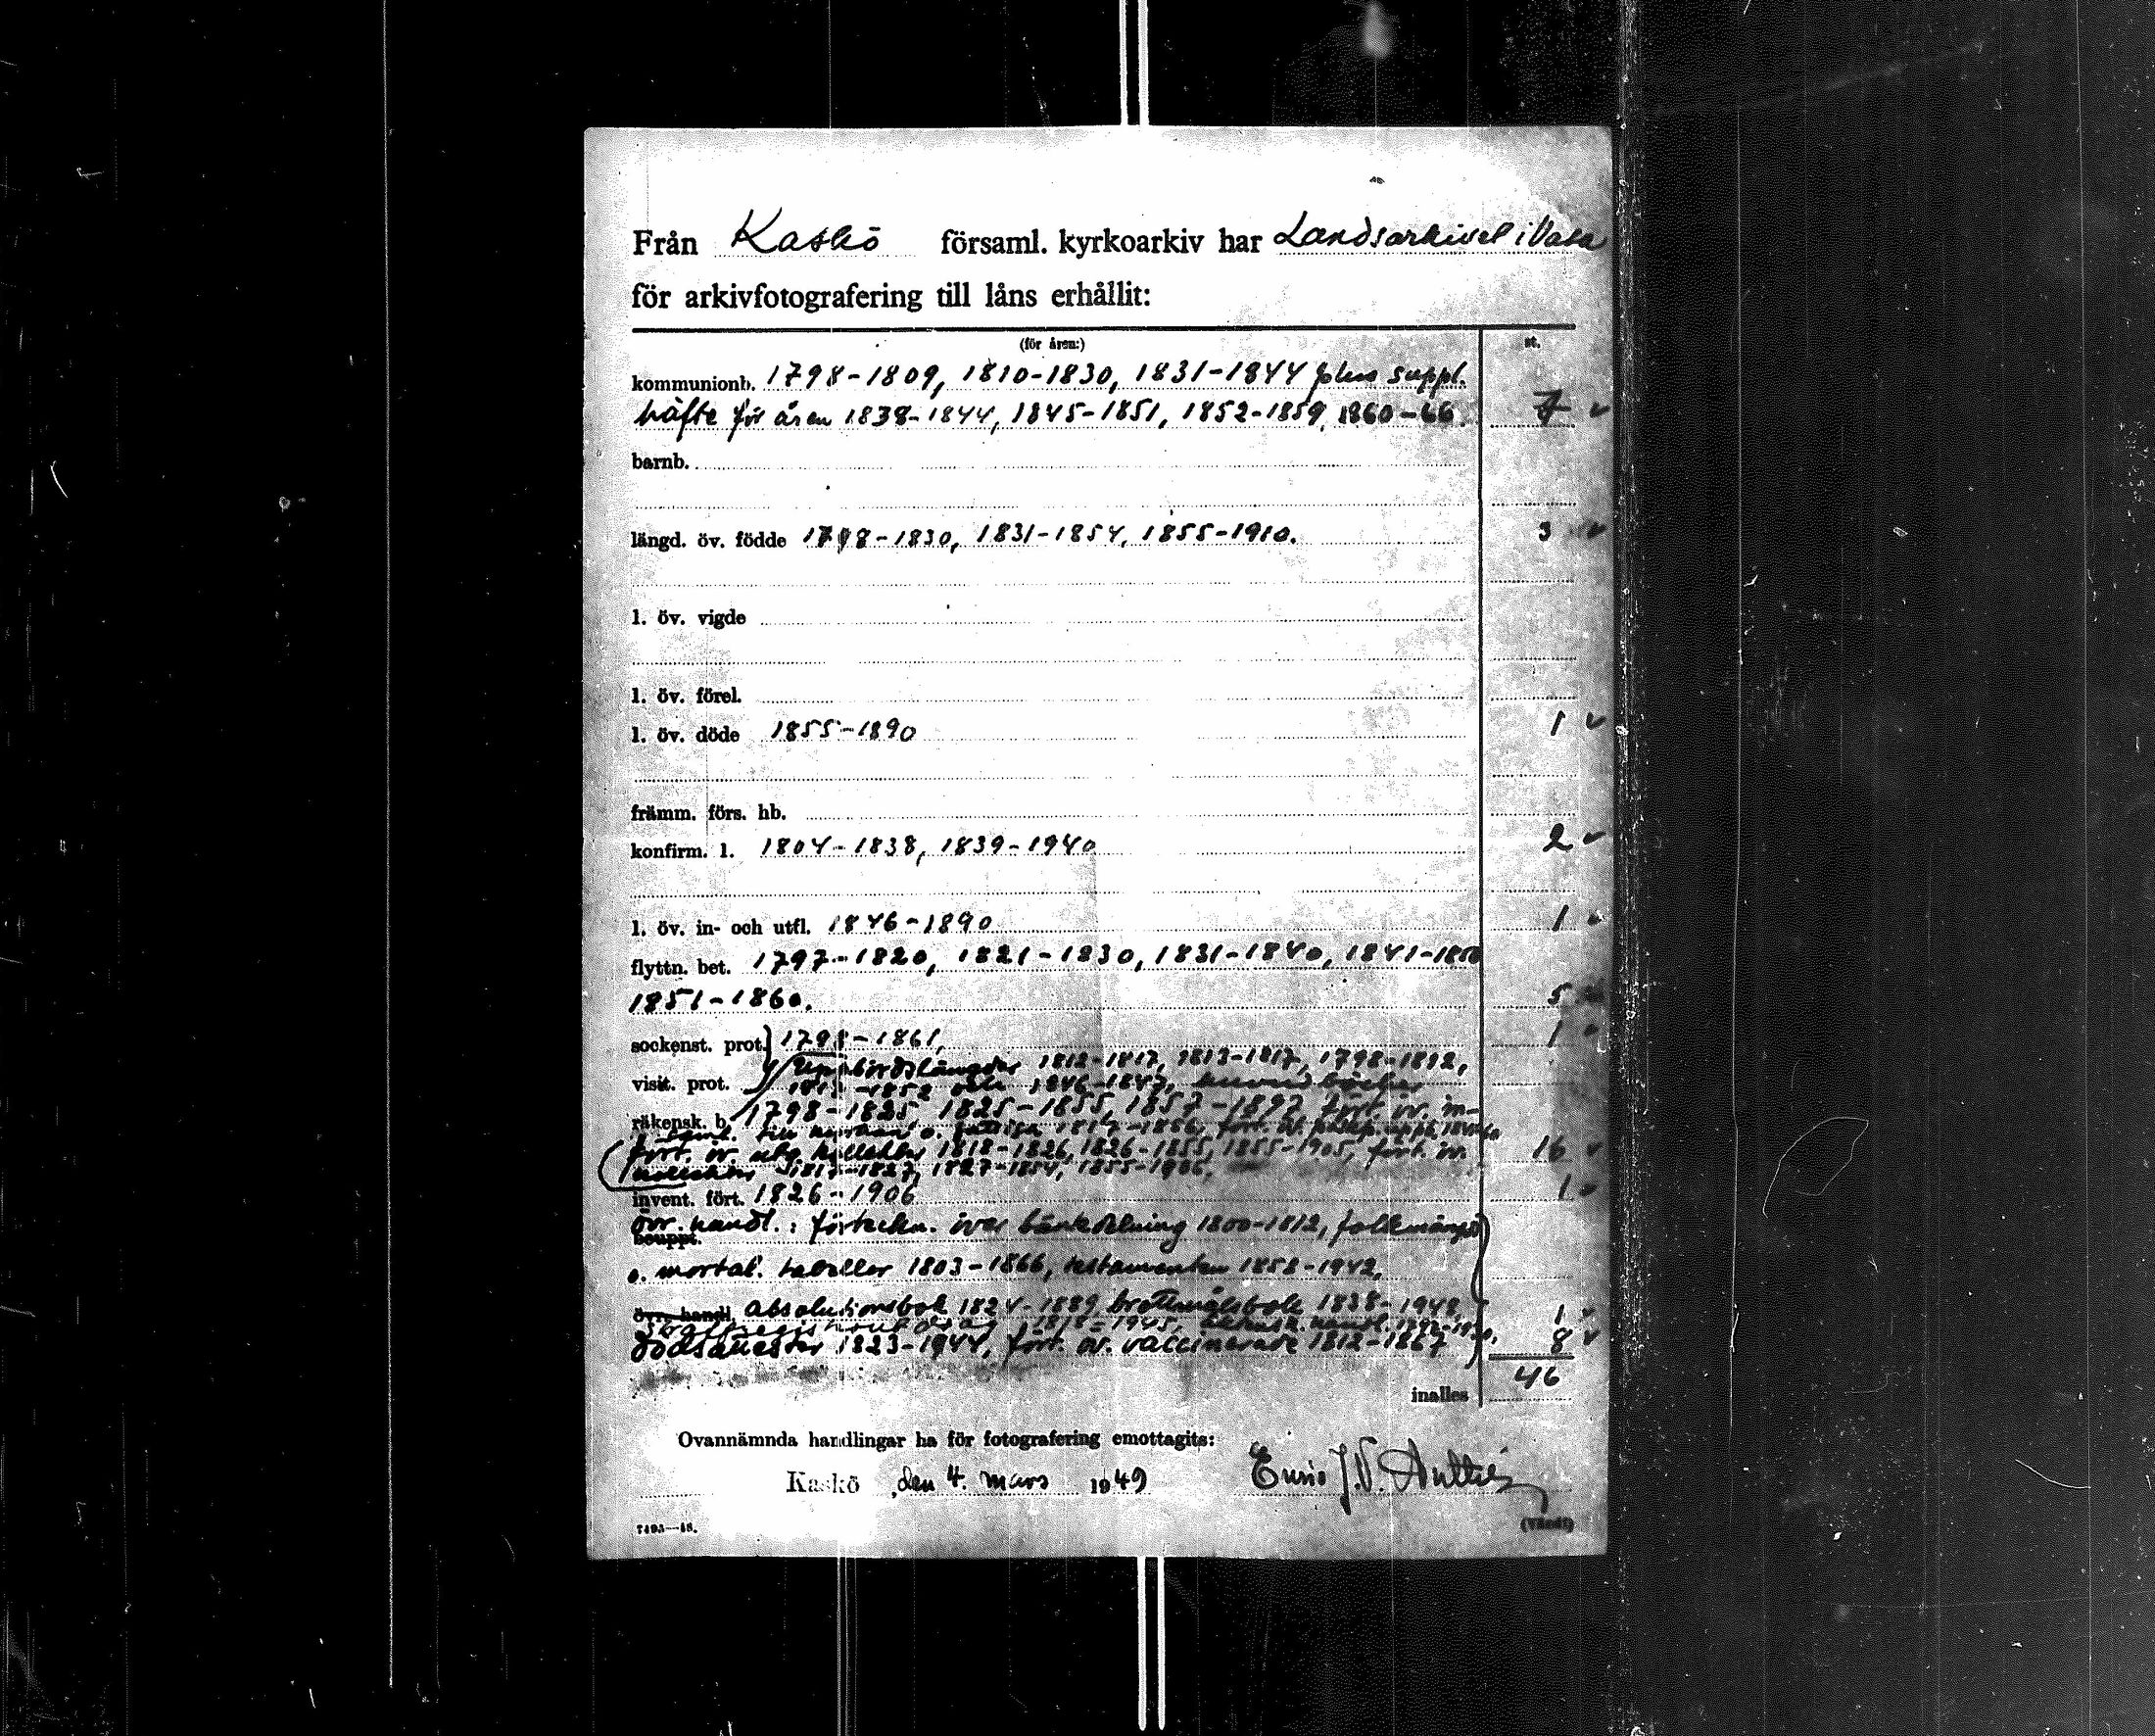 Från Kaskö församl. kyrkoarkiv har Landsarkivet i Vasa
för arkivfotografering till låns erhållit:
(för åren:) st.
kommunionb. 1798-1809, 1810-1830, 1831-1844 plus suppl.
häfte för åren 1838-1844, 1845-1851, 1852-1859, 1860-66. 7
barnb.
längd. öv. födde 1798-1830, 1831-1854, 1855-1910. 3
l. öv. vigde
l. öv. förel.
l. öv. döde 1855-1890 1
främm. förs. hb.
konfirm. l. 1804-1838, 1839-1940 2
l. öv. in- och utfl. 1846-1890 1
flyttn. bet. 1797-1820, 1821-1830, 1831-1840, 1841-1850
1851-1860. 5
sockenst. prot. 1798-1861, 1
Uppbördslängder 1812-1817, 1813-1817, 1798-1812,
visit. prot. -1852 och 1846-1847,
räkensk. b. 1798-1825 1825-1855, 1857-1892, fört. öv. in-
saml. till kyrkan o.
fört. öv. kollekter 1818-1826, 1826-1855, 1855-1905, fört. öv. 16
1827-1854, 1855-1906,
invent. fört. 1826-1906 1
övr. handl.: förteckn. över bänkdelning 1800-1812, folkmängd
bouppt.
o. mortal. tabeller 1803-1866, testamenten 1858-1942,
övr. handl. absolutionsbok 1824-1889, brottmålsbok 1838-1948, 1
dödsattester 1823-1944, fört. öv. vaccinerade 1812-1867 8
inalles 46
Ovannämnda handlingar ha för fotografering emottagits:
Kaskö, den 4. mars 1949
(Vänd!)